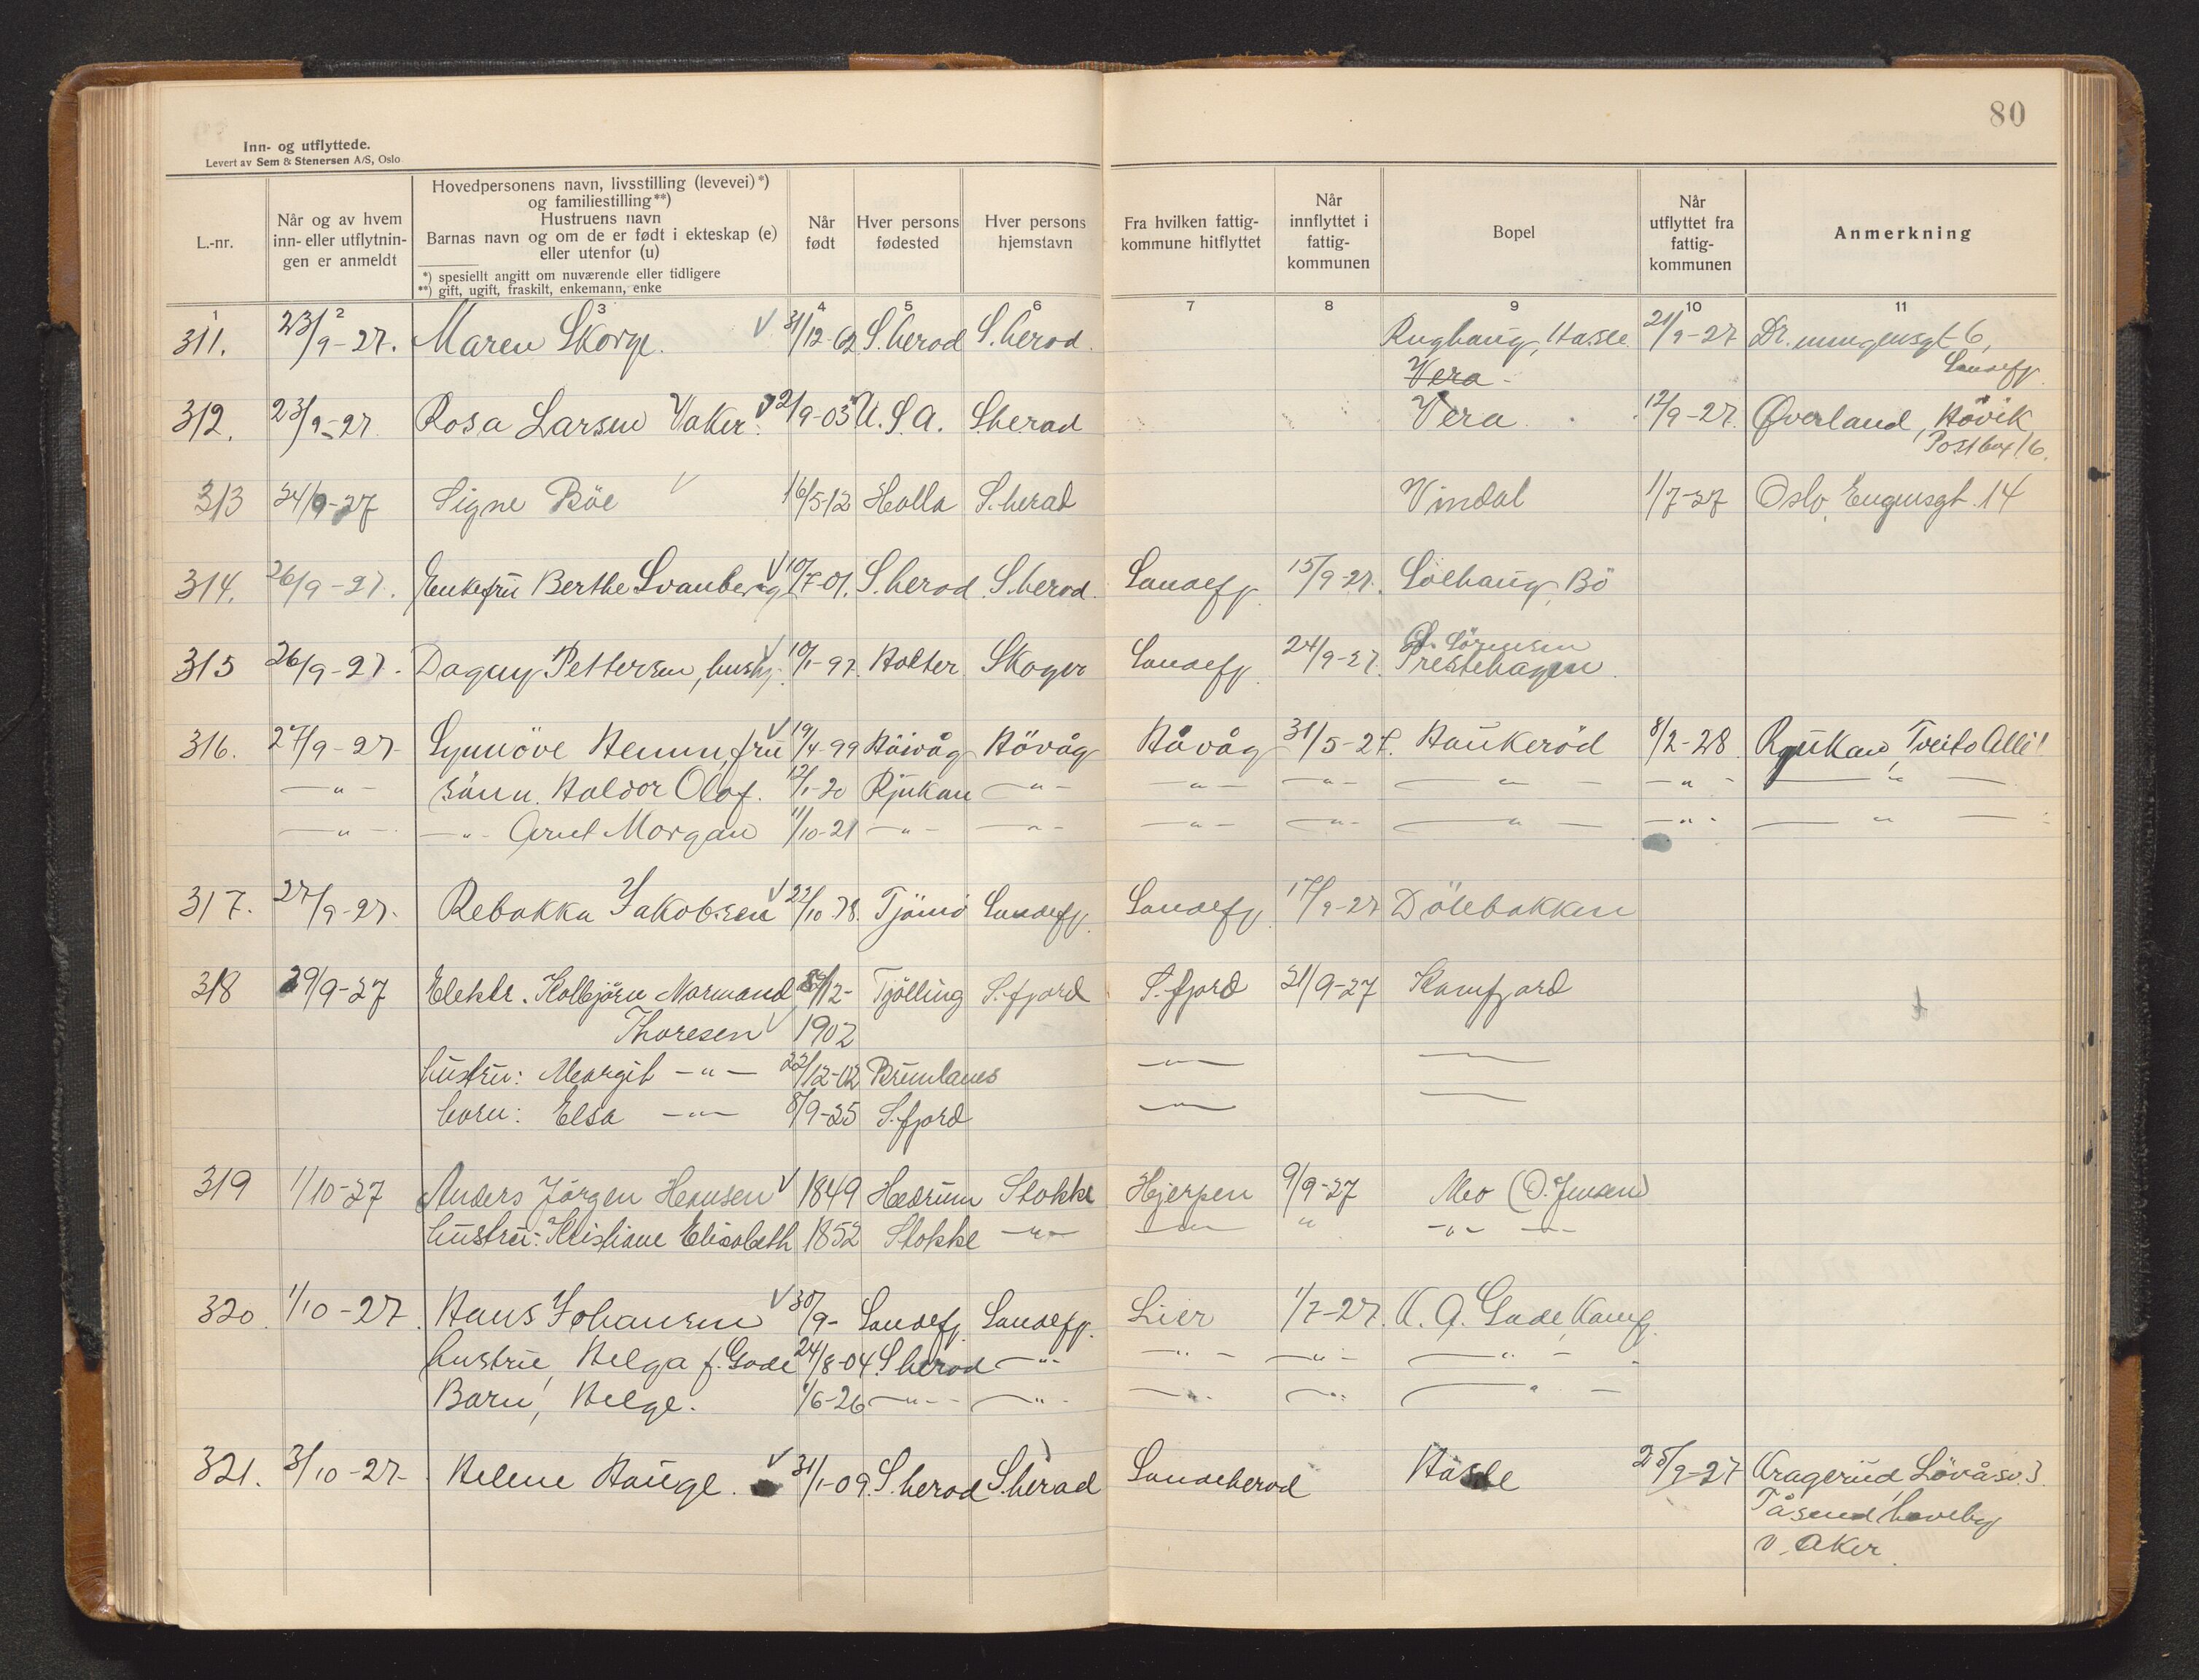 80
Inn- og utflyttede.
Levert av Sem & Stenersen A/S, Oslo
L.-nr.
Når og av hvem inn- eller utflytnin- gen er anmeldt
Hovedpersonens navn, livsstilling (levevei)*)
og familiestilling**)
Hustruens navn
Barnas navn og om de er født i ekteskap (e)
eller utenfor (u)
*) spesiellt angitt om nuværende eller tidligere
**) gift, ugift, fraskilt, enkemann, enke
Når født
Hver persons fødested
Hver persons hjemstavn
Fra hvilken fattig- kommune hitflyttet
Når innflyttet i fattig- kommunen
Bopel
Når utflyttet fra fattig- kommunen
Anmerkning
1 2 3 4 5 6 7 8 9 10 11
311. 23/9-27. Maren Skorge. V 31/12-62 S.herod S.herod. Rughaug, Hasle 21/9-27 Dr. 6,
Vera Sandefj.
312. 23/9-27 Rosa Larsen Vaker. V 2/9-03 U.S.A. S.herad Vera 12/9-27. Øverland, Høvik
Postbox 16.
313 24/9-27 Signe Böe V 16/5-12 Holla S.herad Vindal 1/7-27 Oslo, Eugensgt. 14
314. 26/9-27. Enkefru Berthe Svanberg V 10/7-01. S.herod S.herod. Sandefj. 15/9-27. Solhaug, Bö
315 26/9-27. Dagny Pettersen, hush. V 10/1-97. Holter Skoger Sandefj. 24/9-27. Sörensen
Prestehagen
316. 27/9-27. Synnöve Hemm, fru V 19/4-99 Håvåg Hövåg Håvåg 31/5-27. Haukeröd 8/2-28 Rjukan, Tveito Allé!
—"— sönn. Haldor Olaf. 12/1-20 Rjukan —"— —"— —"— —"— —"— —"—
—"— —"— Arnt Morgan 11/10-21 —"— —"— —"— —"— —"— —"— —"—
317. 27/9-27. Rebakka Jakobsen V 22/10-78. Tjömö Sandefj. Sandefj. 17/9-27 Dölebakken
318 29/9-27 Elektr. Kolbjörn Normand /12- Tjölling S.fjord S.fjord 21/9-27 Kamfjord
Thoresen V 1902
hustru: Margit —"— 22/12-02 Brunlanes —"— —
barn: Elsa —"— 8/9-25 S.fjord —"— —
319 1/10-27 Anders Jörgen Hansen V 1849 Hedrum Stokke Hjerpen 9/9-27 Mo (O. Jensen)
hustru: Kristiane Elisabeth 1852 Stokke —"— —"— " —"— —"—
320. 1/10-27. Hans Johansen V 30/9- Sandefj. Sandefj. Lier 1/7-27. K. A. Gade, Kamf.
hustru, Helga f. Gade 24/8-04 S.herod —"— —"— —"— —"—
Barn, Helge. 1/6-26 —"— —"— —"— —"— —"—
321. 3/10-27. Helene Hauge. V 31/1-09. S.herod S.herad Sandeherod Hasle 25/9-27 Kragerud, Lövåsv. 3
Tåsend haveby
v. Aker.